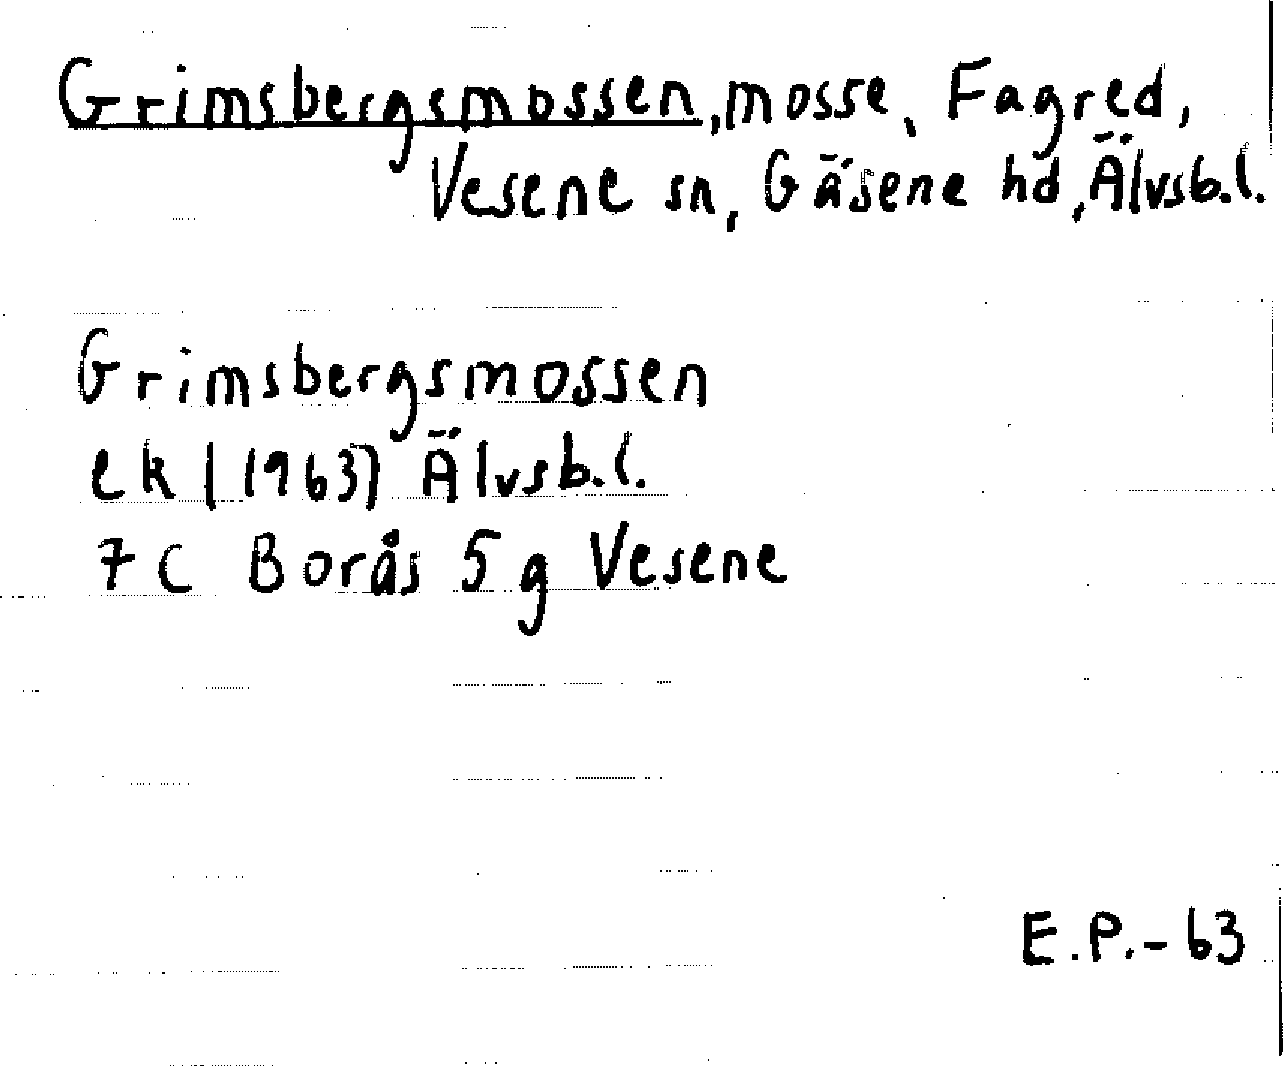 Grimsbergsmossen, mosse, Fagred,
Vesene sn, Gäsene hd, Älvsb.l.
Grimsbergsmossen
ek (1963) Älvsb.l.
7 C Borås 5 g Vesene
E.P.-63